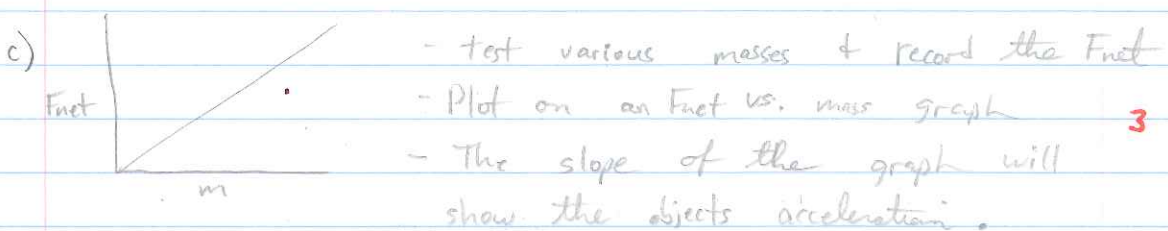 c)
- test various masses & record the Fnet
Fnet
- Plot on an Fnet vs. mass graph
3
- The slope of the graph will
m
show the objects acceleration.